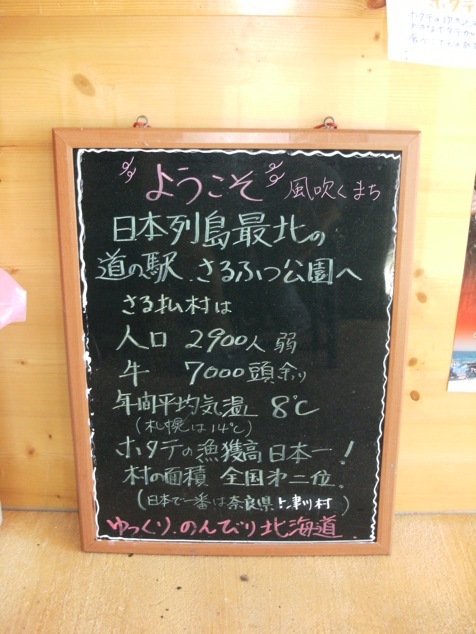 ようこそ 風吹くまち
日本列島最北の
道の駅 さるふつ公園へ
さる払村は
人口 2900人弱
牛 7000頭余り
年間平均気温 8℃
(札幌は14℃)
ホタテの漁獲高日本一!
村の面積 全国第二位.
(日本で一番は奈良県十津川村)
ゆっくり.のんびり北海道.
ホタテ